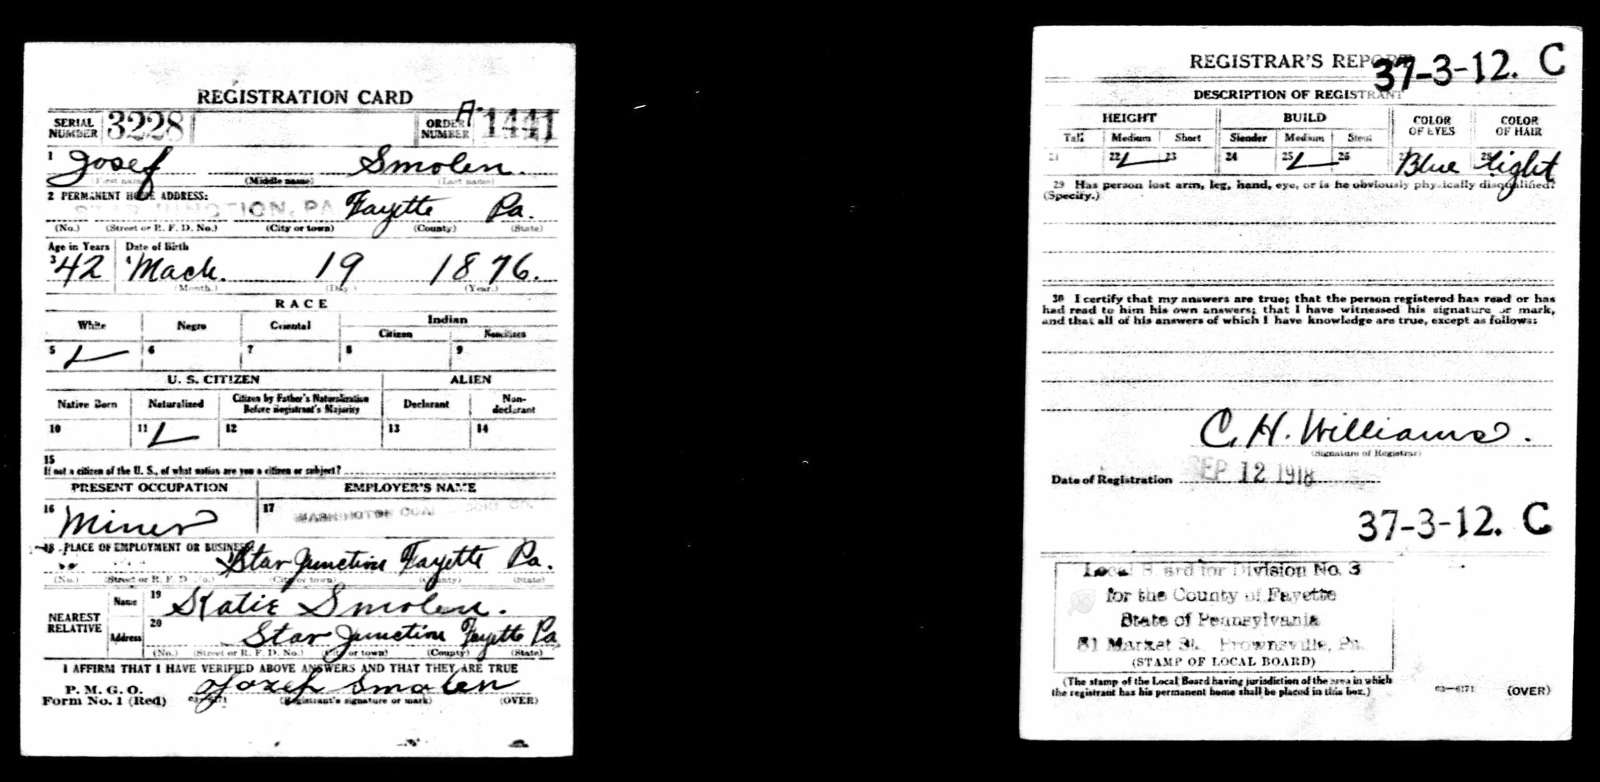 REGISTRATION CARD
SERIAL NUMBER 3228 ORDER NUMBER A 1441
1 Josef Smolen.
(First name) (Middle name) (Last name)
2 PERMANENT HOME ADDRESS:
STAR JUNCTION, PA Fayette Pa.
(No.) (Street or R. F. D. No.) (City or town) (County) (State)
Age in Years Date of Birth
3 42 4 Mach. 19 1876.
(Month.) (Day.) (Year.)
RACE
White Negro Oriental Indian
Citizen Noncitizen
5 6 7 8 9
U. S. CITIZEN ALIEN
Native Born Naturalized Citizen by Father's Naturalization Before Registrant's Majority Declarant Non-declarant
10 11 12 13 14
15
If not a citizen of the U. S., of what nation are you a citizen or subject?
PRESENT OCCUPATION EMPLOYER'S NAME
16 Miner 17 WASHINGTON COAL
18 PLACE OF EMPLOYMENT OR BUSINESS:
Star Junction Fayette Pa.
(No.) (Street or R. F. D. No.) (City or town) (County) (State)
NEAREST RELATIVE Name 19 Katie Smolen.
Address 20 Star Junction Fayette Pa
(No.) (Street or R. F. D. No.) (City or town) (County) (State)
I AFFIRM THAT I HAVE VERIFIED ABOVE ANSWERS AND THAT THEY ARE TRUE
P. M. G. O.
Form No. 1 (Red) 03—6171 Jozef Smolen
(Registrant's signature or mark) (OVER)
REGISTRAR'S REPORT 37-3-12. C
DESCRIPTION OF REGISTRANT
HEIGHT BUILD COLOR OF EYES COLOR OF HAIR
Tall Medium Short Slender Medium Stout
21 22 23 24 25 26 27 Blue 28 Light
29 Has person lost arm, leg, hand, eye, or is he obviously physically disqualified?
(Specify.)
30 I certify that my answers are true; that the person registered has read or has
had read to him his own answers; that I have witnessed his signature or mark,
and that all of his answers of which I have knowledge are true, except as follows:
C. H. Williams.
(Signature of Registrar)
Date of Registration SEP 12 1918
37-3-12. C
Local Board for Division No. 3
for the County of Fayette
State of Pennsylvania
51 Market St. Brownsville, Pa.
(STAMP OF LOCAL BOARD)
(The stamp of the Local Board having jurisdiction of the area in which
the registrant has his permanent home shall be placed in this box.)
03—6171 (OVER)